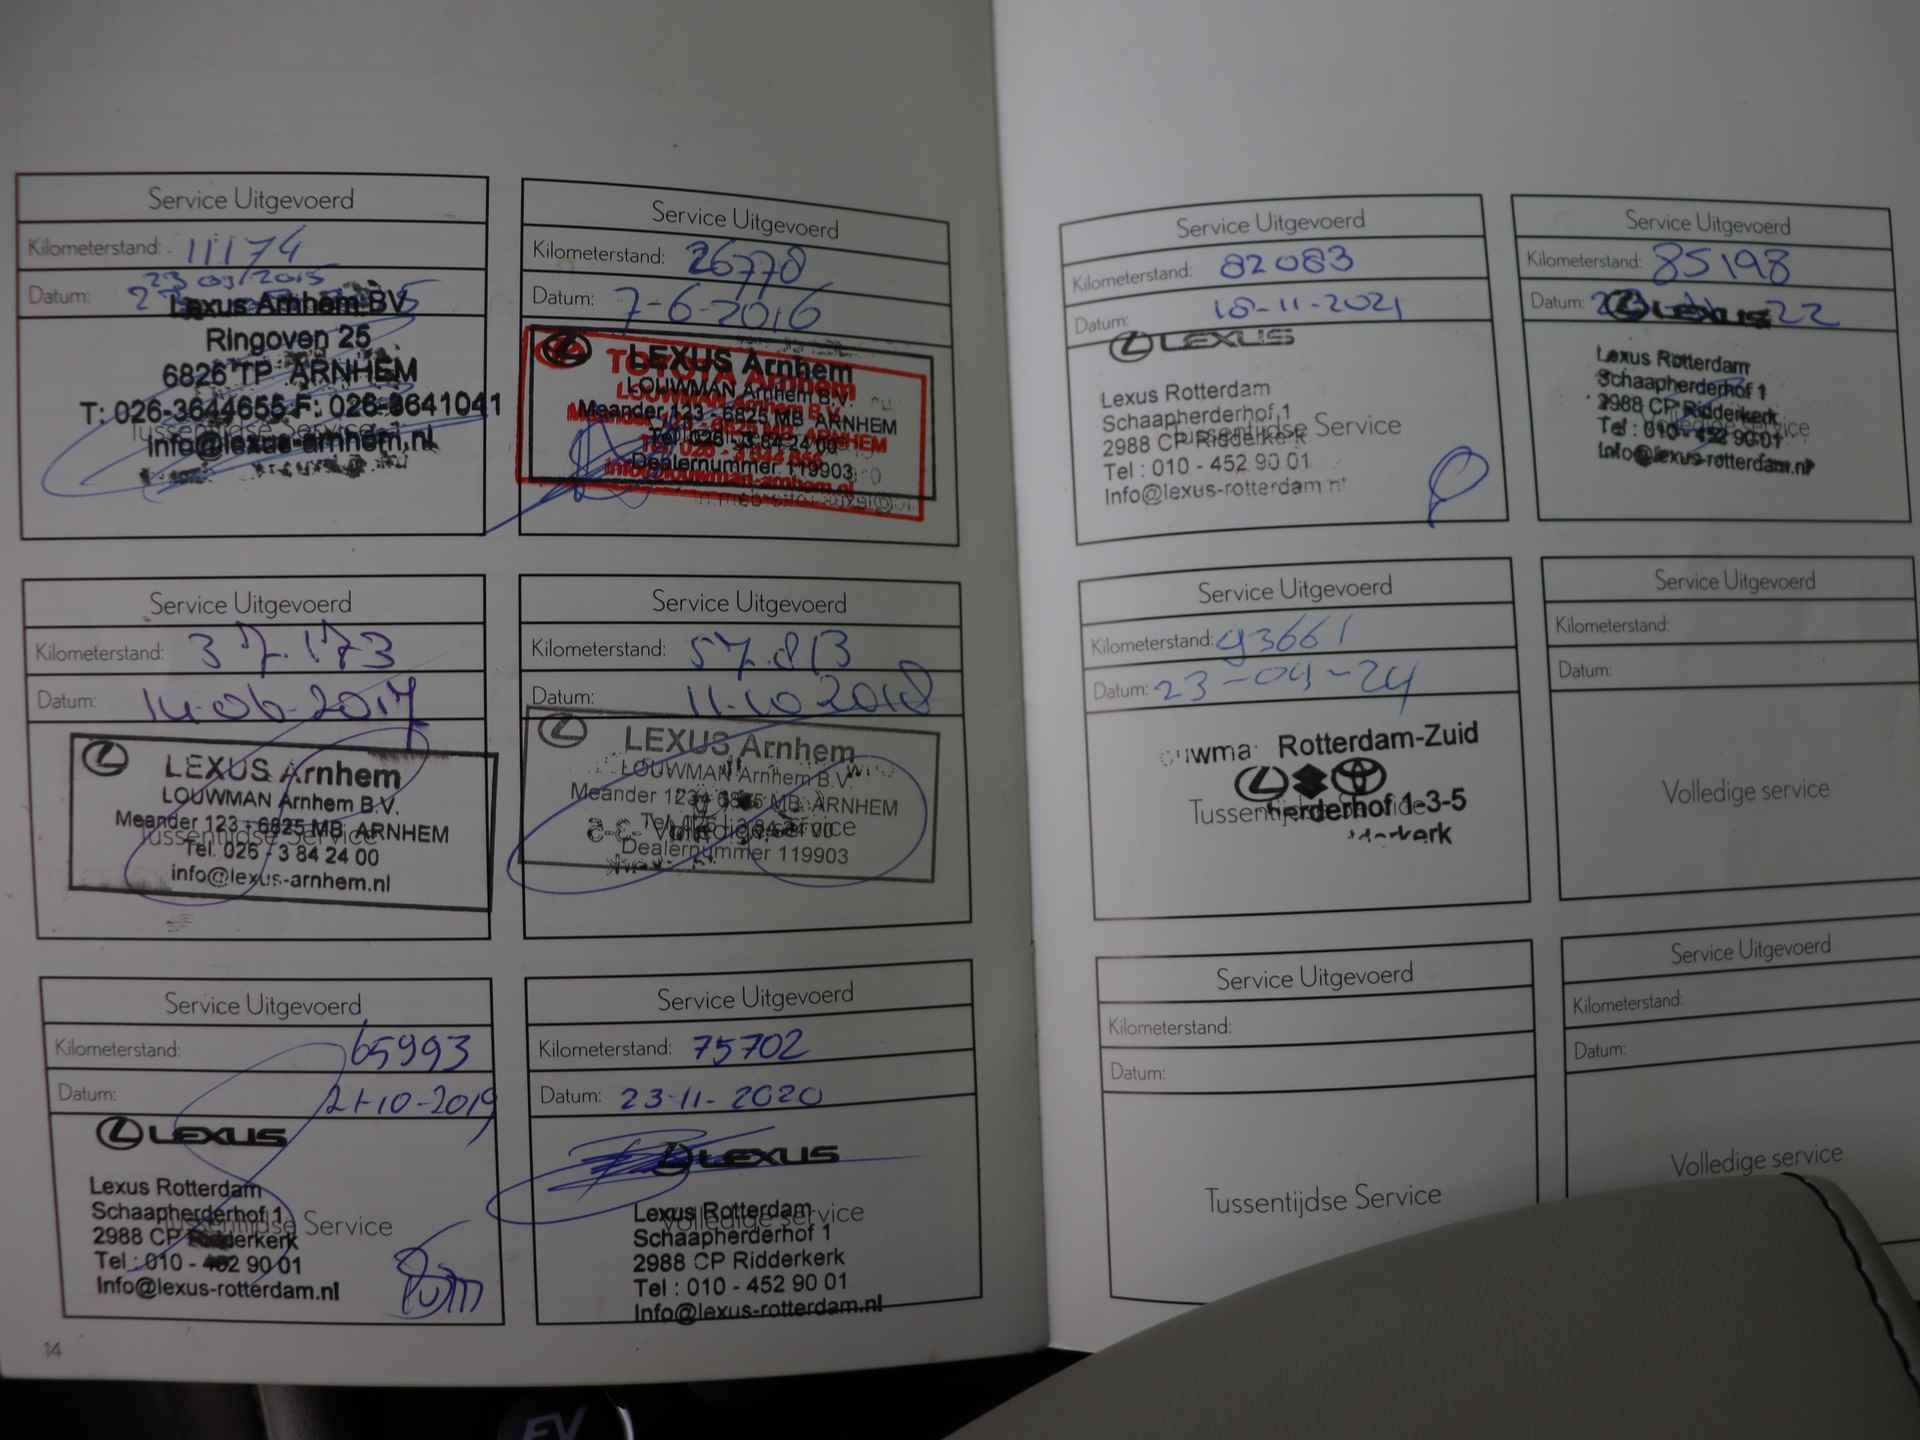 Service Uitgevoerd
Kilometerstand: 11174
Datum: 23 03/2015
Lexus Arnhem BV
Ringoven 25
6826 TP ARNHEM
T: 026-3644655 F: 026-3641041
Tussentijdse Service
Info@lexus-arnhem.nl
Service Uitgevoerd
Kilometerstand: 26778
Datum: 7-6-2016
LEXUS Arnhem
TOYOTA Arnhem
LOUWMAN Arnhem B.V.
Meander 123 - 6825 MB ARNHEM
Tel. 026 - 3 84 24 00
Dealernummer 119903
info@louwman-arnhem.nl
Service Uitgevoerd
Kilometerstand: 37.173
Datum: 14-06-2017
LEXUS Arnhem
LOUWMAN Arnhem B.V.
Meander 123 - 6825 MB ARNHEM
Tussentijdse Service
Tel. 026 - 3 84 24 00
info@lexus-arnhem.nl
Service Uitgevoerd
Kilometerstand: 57.813
Datum: 11-10 2018
LEXUS Arnhem
LOUWMAN Arnhem B.V.
Meander 123 6825 MB ARNHEM
Volledige service
Dealernummer 119903
Service Uitgevoerd
Kilometerstand: 65993
Datum: 21-10-2019
LEXUS
Lexus Rotterdam
Schaapherderhof 1
Tussentijdse Service
2988 CP Ridderkerk
Tel : 010 - 452 90 01
Info@lexus-rotterdam.nl
Service Uitgevoerd
Kilometerstand: 75702
Datum: 23-11-2020
LEXUS
Lexus Rotterdam
Volledige service
Schaapherderhof 1
2988 CP Ridderkerk
Tel : 010 - 452 90 01
Info@lexus-rotterdam.nl
14
Service Uitgevoerd
Kilometerstand: 82083
Datum: 18-11-2021
LEXUS
Lexus Rotterdam
Schaapherderhof 1
Tussentijdse Service
2988 CP Ridderkerk
Tel : 010 - 452 90 01
Info@lexus-rotterdam.nl
Service Uitgevoerd
Kilometerstand: 85198
Datum: 22
LEXUS
Lexus Rotterdam
Schaapherderhof 1
2988 CP Ridderkerk
Volledige service
Tel : 010 - 452 90 01
Info@lexus-rotterdam.nl
Service Uitgevoerd
Kilometerstand: 93661
Datum: 23-04-24
Rotterdam-Zuid
Tussentijdse Service
herderhof 1-3-5
Service Uitgevoerd
Kilometerstand:
Datum:
Volledige service
Service Uitgevoerd
Kilometerstand:
Datum:
Tussentijdse Service
Service Uitgevoerd
Kilometerstand:
Datum:
Volledige service
EV